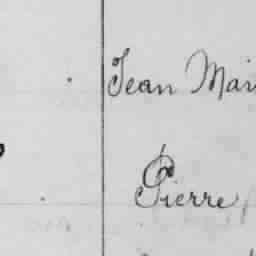 Jean Mari
Pierre